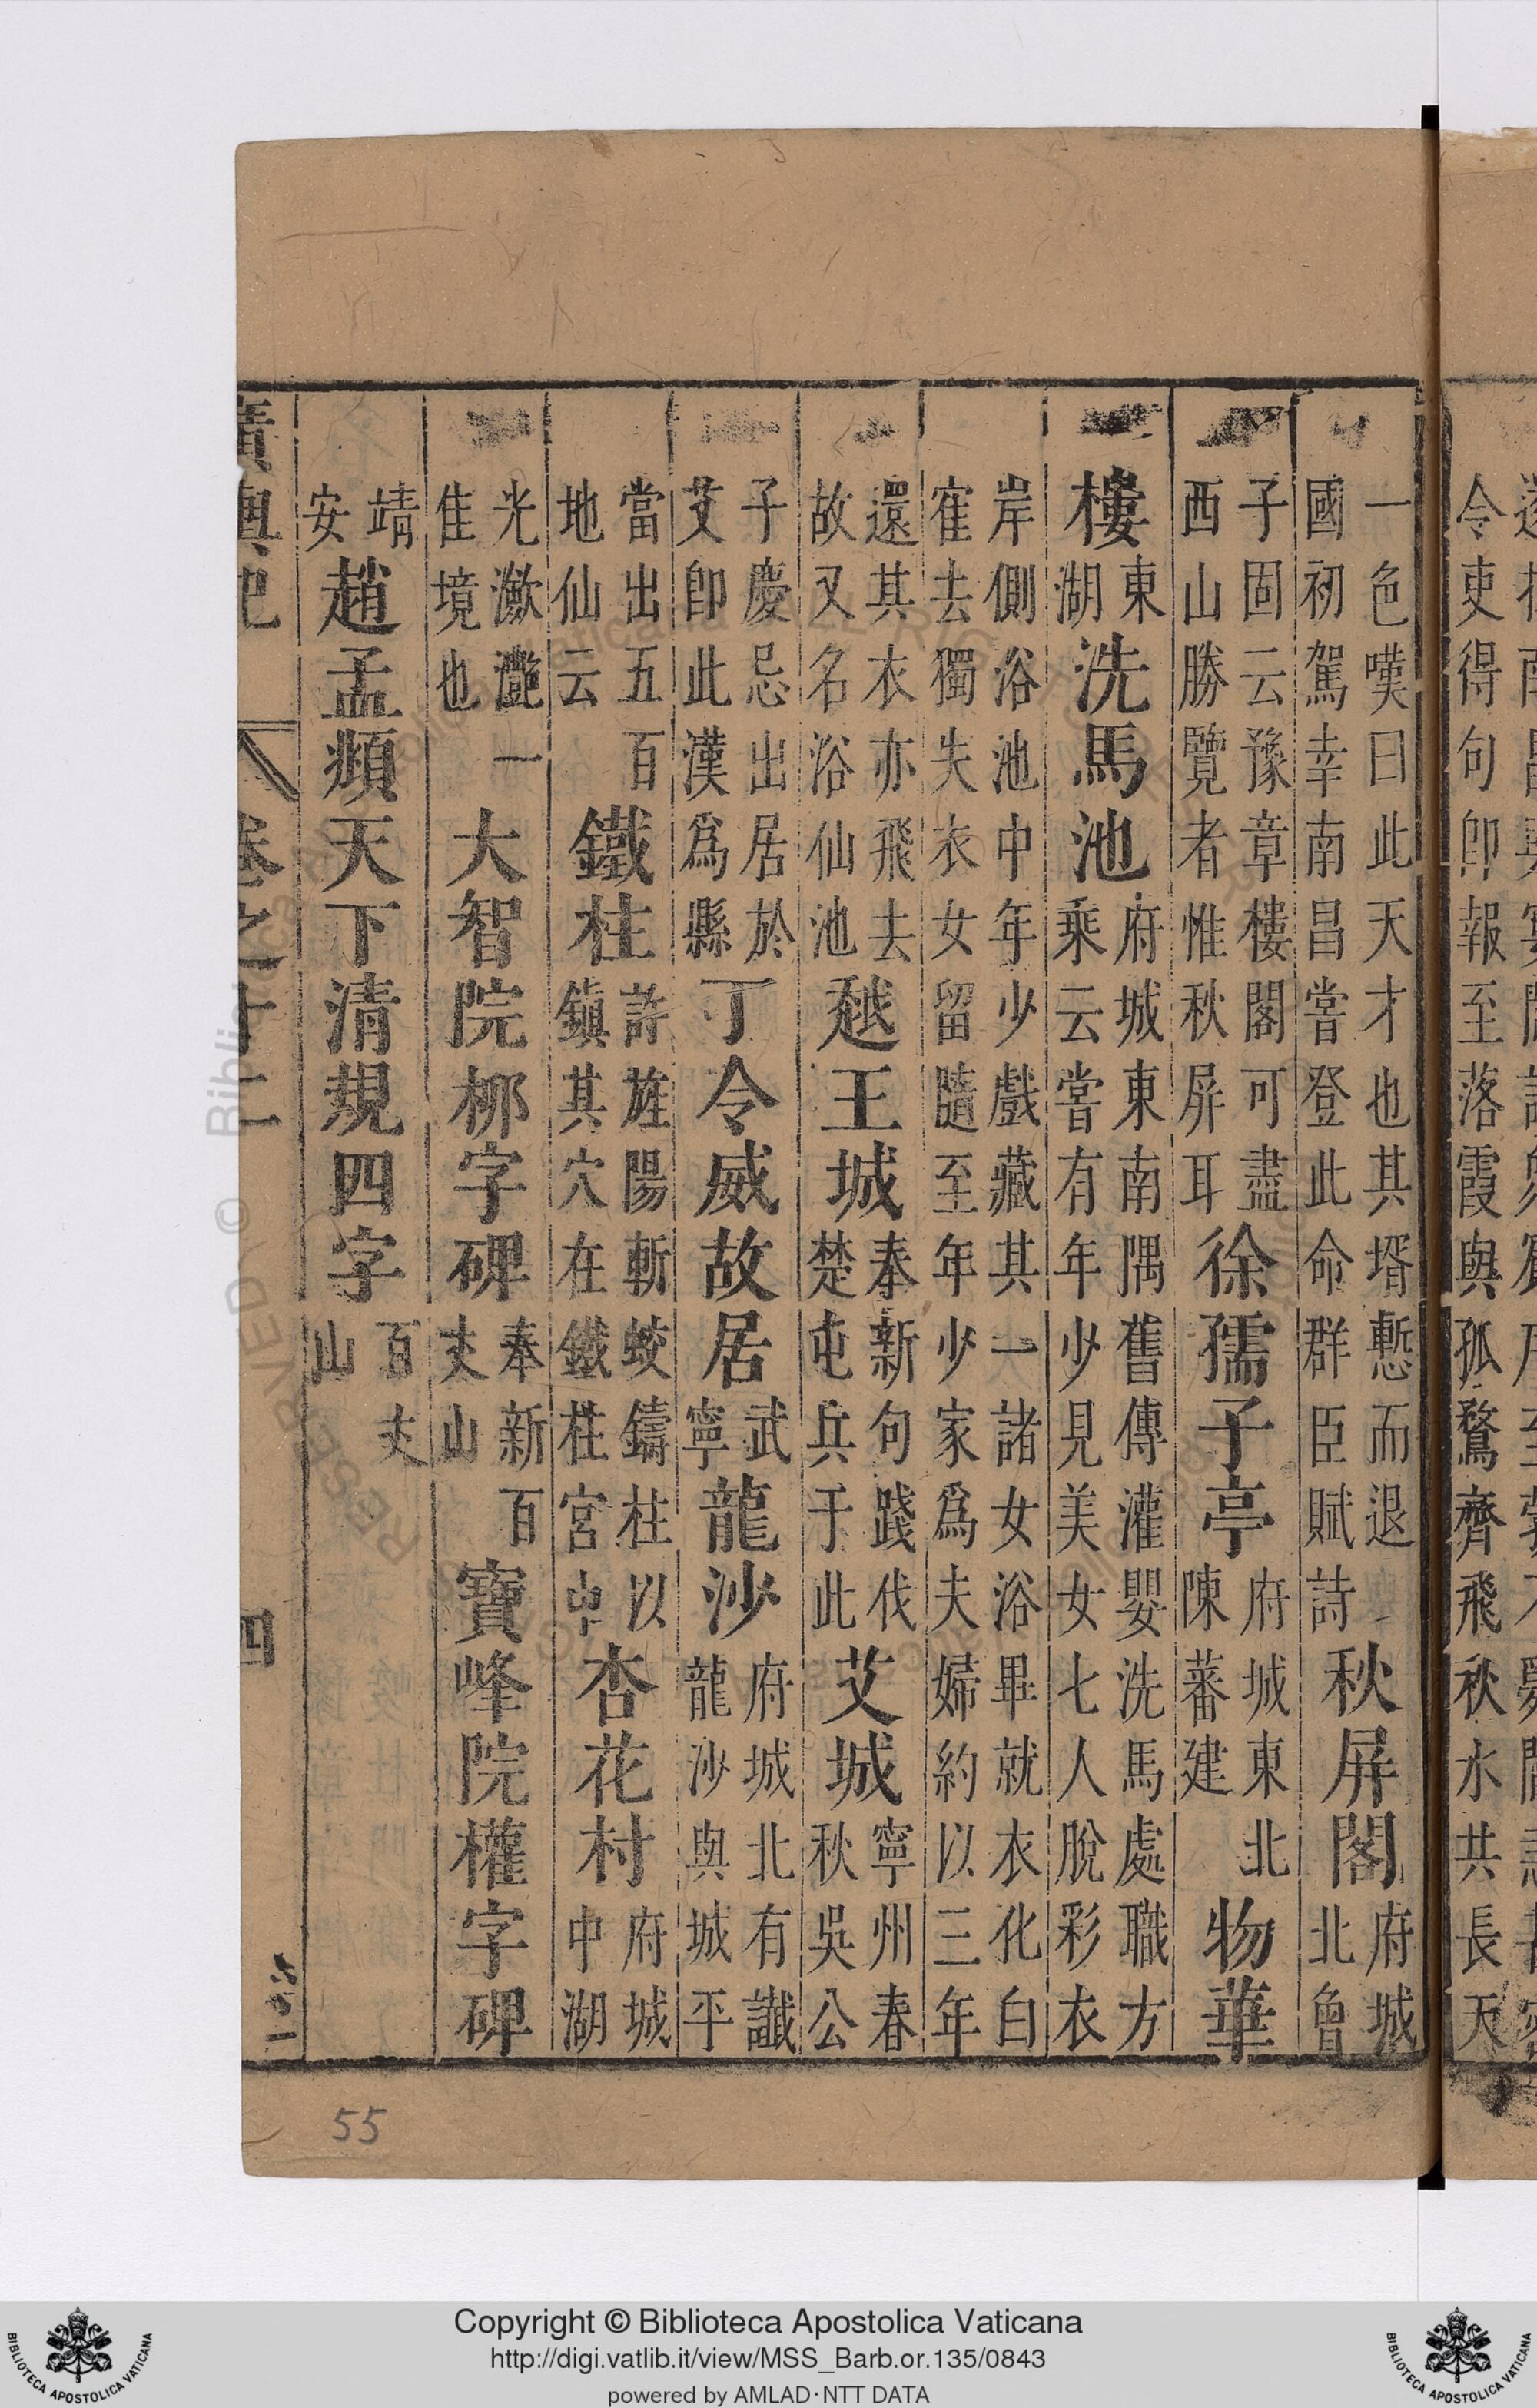 令吏得句卽報至落霞與孤鶩齊飛秋水共長天
一色嘆曰此天才也其壻慙而退國初駕幸南昌嘗登此命群臣賦詩秋屏閣府城北曾
子固云豫章樓閣可盡西山勝覽者惟秋屏耳徐孺子亭府城東北陳蕃建物華
樓東湖洗馬池府城東南隅舊傳灌嬰洗馬處職方乘云嘗有年少見美女七人脫彩衣
岸側浴池中年少戲藏其一諸女浴畢就衣化白隺去獨失衣女留隨至年少家爲夫婦約以三年
還其衣亦飛去故又名浴仙池越王城奉新句踐伐楚屯兵于此艾城寧州春秋吳公
子慶忌出居於艾卽此漢爲縣丁令威故居武寧龍沙府城北有讖龍沙與城平
當出五百地仙云鐵柱許旌陽斬蛟鑄柱以鎮其穴在鐵柱宮中杏花村府城中湖
光瀲灔一佳境也大智院栁字碑奉新百丈山寶峰院權字碑
靖安趙孟頫天下清規四字百丈山
廣輿記 卷之十二 四
55
Copyright © Biblioteca Apostolica Vaticana
http://digi.vatlib.it/view/MSS_Barb.or.135/0843
powered by AMLAD·NTT DATA
BIBLIOTECA APOSTOLICA VATICANA
BIBLIOTECA APOSTOLICA VATICANA